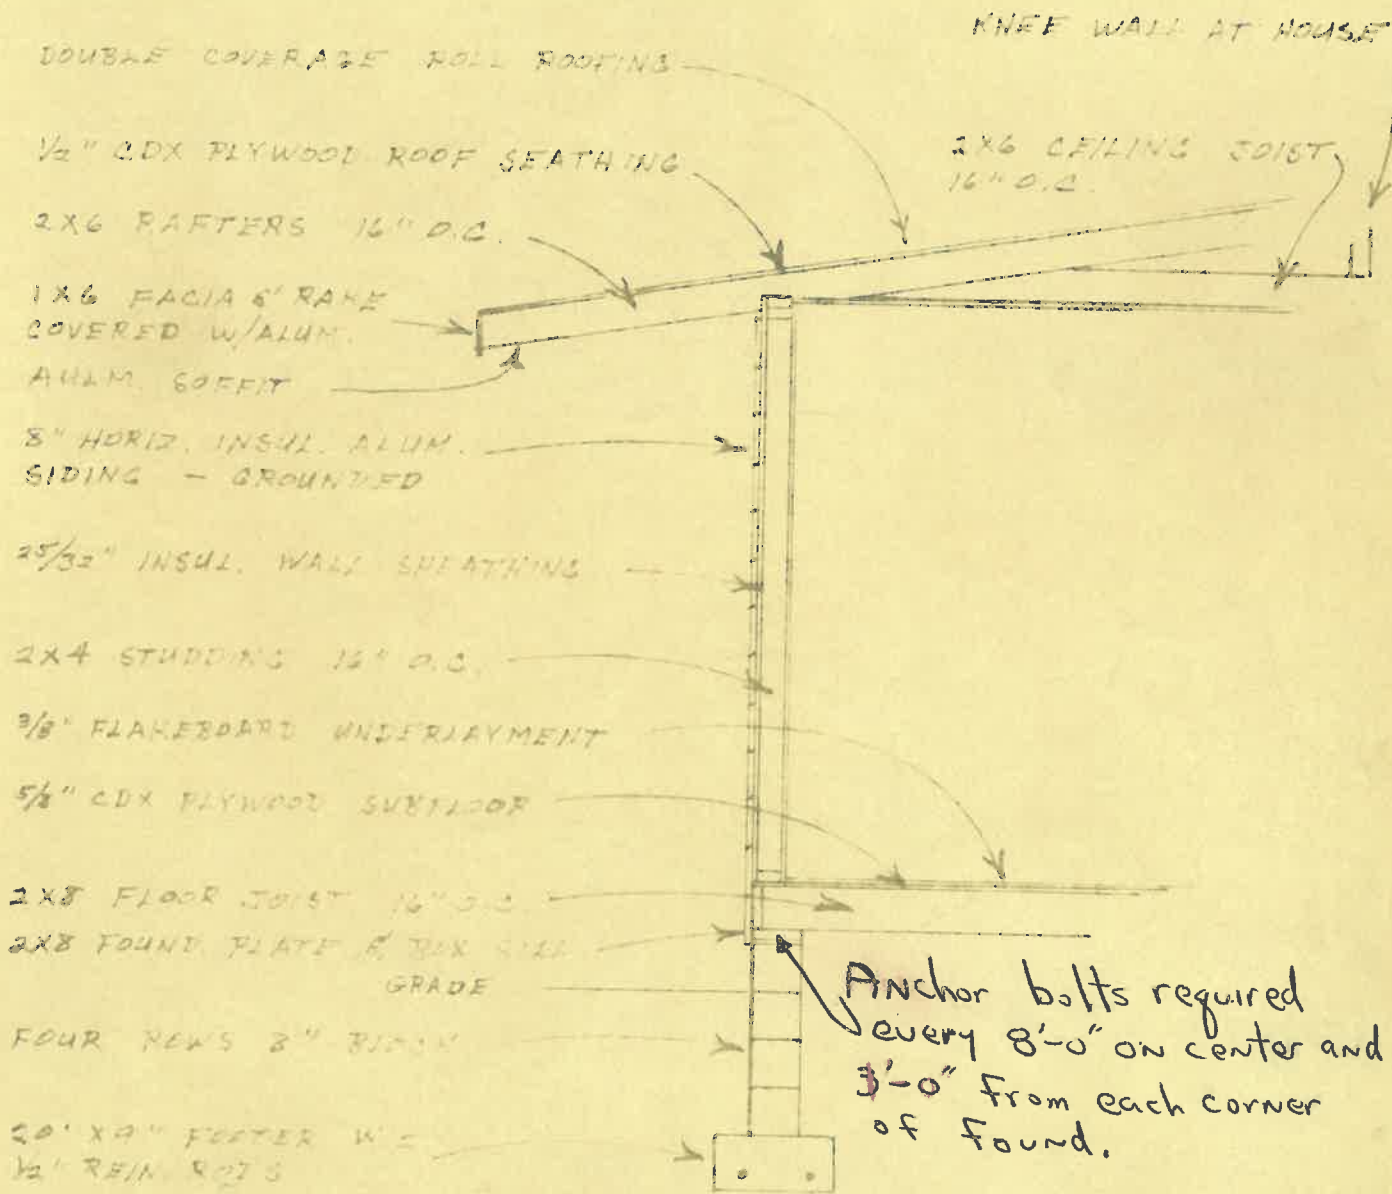 KNEE WALL AT HOUSE
DOUBLE COVERAGE ROLL ROOFING
1/2" CDX PLYWOOD ROOF SEATHING
2X6 CEILING JOIST
16" O.C.
2X6 RAFTERS 16" O.C.
1X6 FACIA & RAKE
COVERED W/ALUM.
AULM. SOFFIT
8" HORIZ. INSUL. ALUM.
SIDING - GROUNDED
25/32" INSUL. WALL SHEATHING
2X4 STUDDING 16" O.C.
3/8" FLAKEBOARD UNDERLAYMENT
5/8" CDX PLYWOOD SUBFLOOR
2X8 FLOOR JOIST 16" O.C.
2X8 FOUND. PLATE & BOX SILL
GRADE
FOUR ROWS 8" BLOCK
Anchor bolts required
every 8'-0" on center and
3'-0" from each corner
of Found.
FOOTER
1/2" REIN. RODS